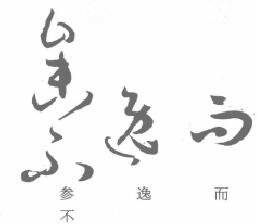 参 逸 而
不